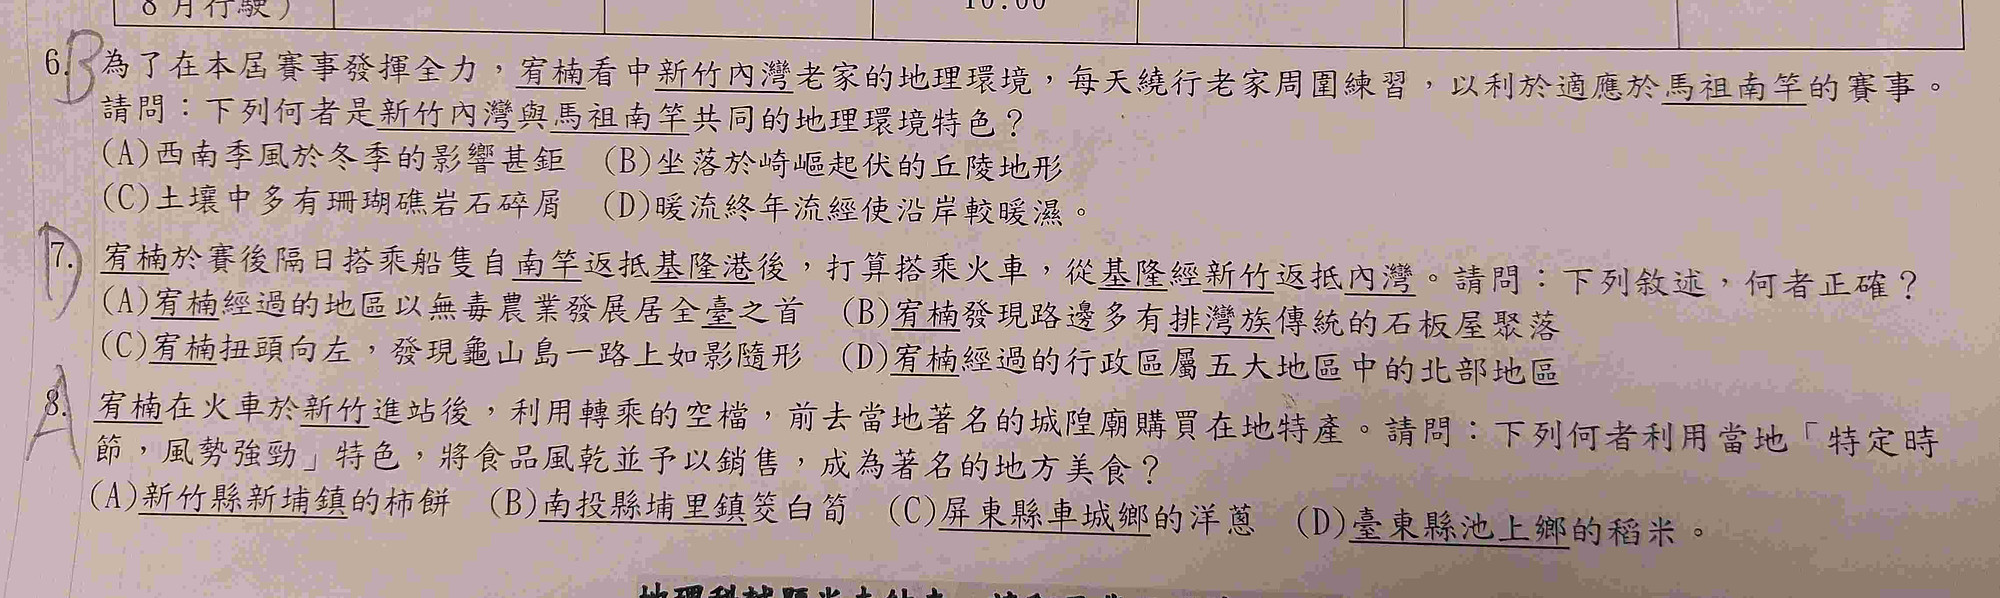 8月行駛)
10:00
B
6.為了在本屆賽事發揮全力，宥楠看中新竹內灣老家的地理環境，每天繞行老家周圍練習，以利於適應於馬祖南竿的賽事。
請問：下列何者是新竹內灣與馬祖南竿共同的地理環境特色？
(A)西南季風於冬季的影響甚鉅 (B)坐落於崎嶇起伏的丘陵地形
(C)土壤中多有珊瑚礁岩石碎屑 (D)暖流終年流經使沿岸較暖濕。
D
7. 宥楠於賽後隔日搭乘船隻自南竿返抵基隆港後，打算搭乘火車，從基隆經新竹返抵內灣。請問：下列敘述，何者正確？
(A)宥楠經過的地區以無毒農業發展居全臺之首 (B)宥楠發現路邊多有排灣族傳統的石板屋聚落
(C)宥楠扭頭向左，發現龜山島一路上如影隨形 (D)宥楠經過的行政區屬五大地區中的北部地區
A
8. 宥楠在火車於新竹進站後，利用轉乘的空檔，前去當地著名的城隍廟購買在地特產。請問：下列何者利用當地「特定時
節，風勢強勁」特色，將食品風乾並予以銷售，成為著名的地方美食？
(A)新竹縣新埔鎮的柿餅 (B)南投縣埔里鎮筊白筍 (C)屏東縣車城鄉的洋蔥 (D)臺東縣池上鄉的稻米。